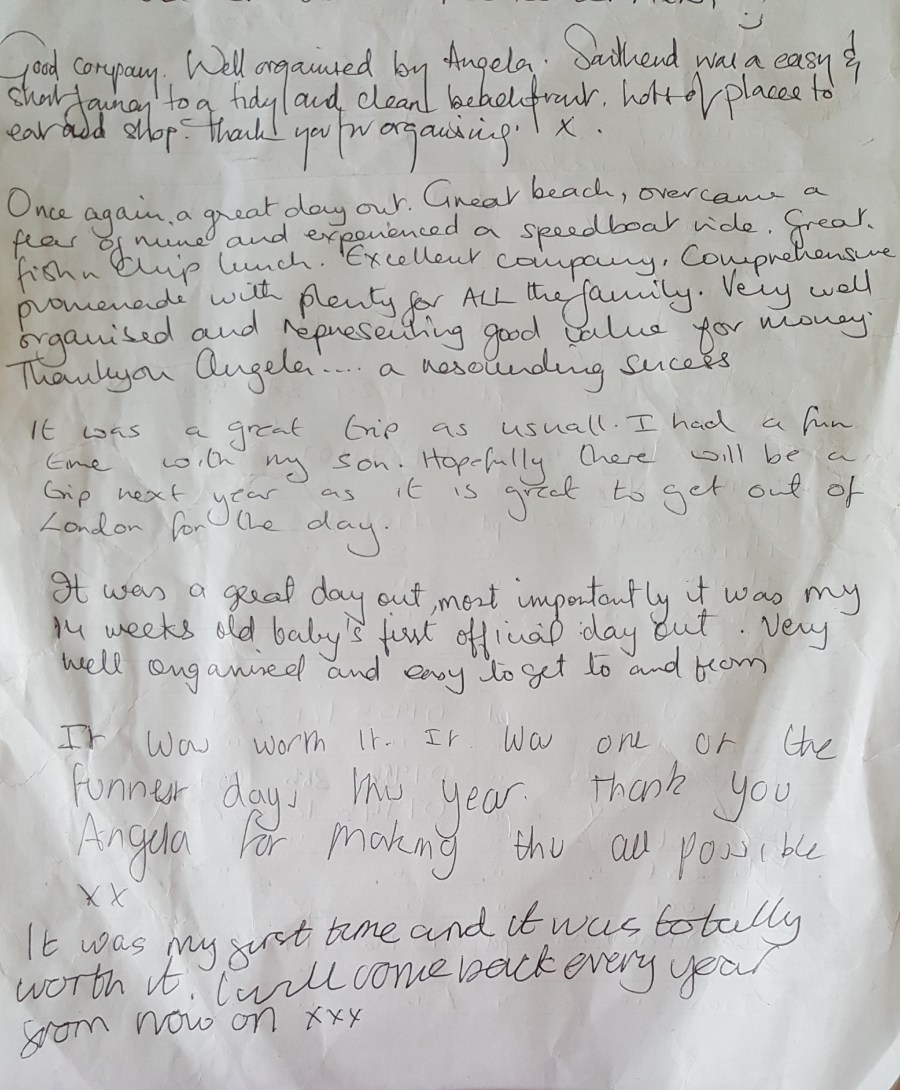 Good company. Well organised by Angela. Southend was a easy &
short journey to a tidy and clean beachfront. lots of places to
eat and shop. Thank you for organising. x.
Once again, a great day out. Great beach, overcame a
fear of mine and experienced a speedboat ride. Great.
fish n chip lunch. Excellent company. Comprehensive
promenade with plenty for ALL the family. Very well
organised and representing good value for money.
Thankyou Angela.... a resounding sucess
It was a great trip as usuall. I had a fun
time with my son. Hopefully there will be a
trip next year as it is great to get out of
London for the day.
It was a great day out, most importantly it was my
14 weeks old baby's first official day out. Very
well organised and easy to get to and from
It was worth it. It was one of the
funnest days this year. Thank you
Angela for making this all possible
xx
It was my first time and it was totally
worth it. I will come back every year
from now on xxx